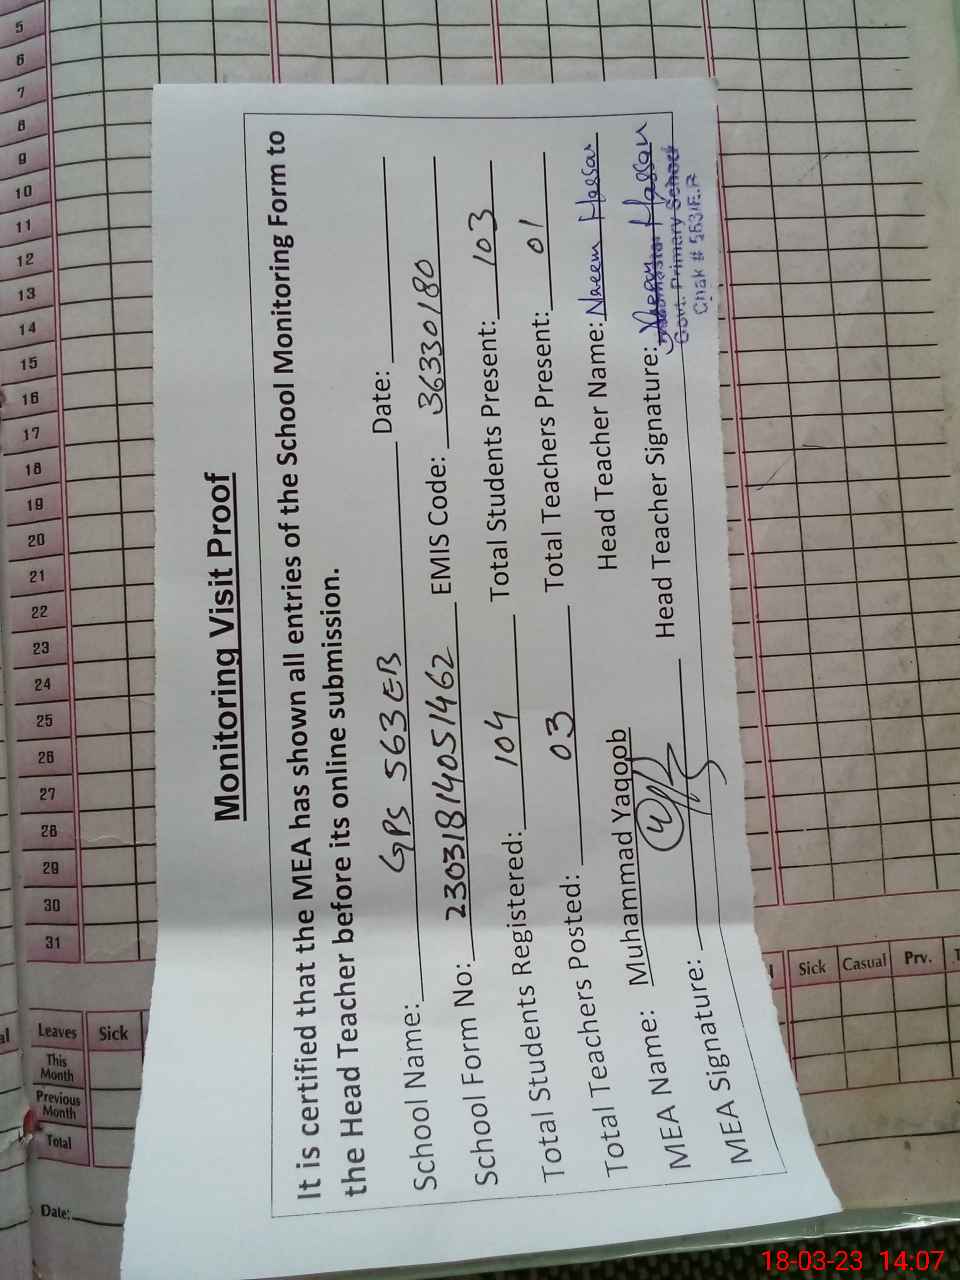 Monitoring Visit Proof
It is certified that the MEA has shown all entries of the School Monitoring Form to
the Head Teacher before its online submission.
School Name: GPS 563 EB Date:
School Form No: 23031814051462 EMIS Code: 36330180
Total Students Registered: 104 Total Students Present: 103
Total Teachers Posted: 03 Total Teachers Present: 01
MEA Name: Muhammad Yaqoob Head Teacher Name: Naeem Hassan
MEA Signature: Head Teacher Signature: Naeem Hassan
Govt. Primary School
Chak # 563/E.B
5
6
7
8
9
10
11
12
13
14
15
16
17
18
19
20
21
22
23
24
25
26
27
28
29
30
31
Leaves Sick
This Month
Previous Month
Total
Date:
Sick Casual Prv.
18-03-23 14:07